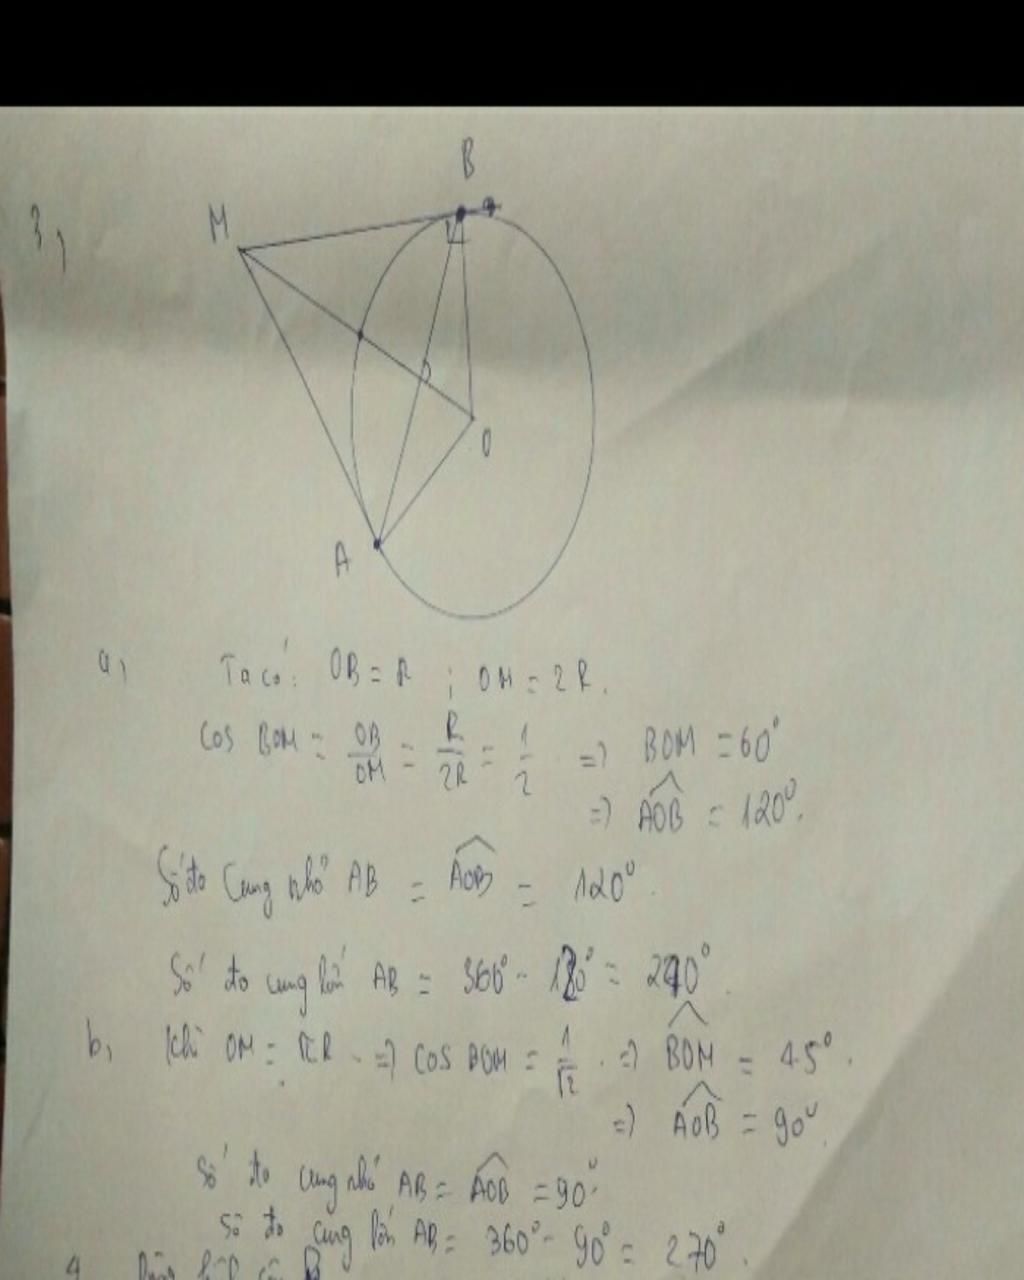 3,
B
M
O
A
a, Ta có: OB = R ; OM = 2R.
Cos BOM = OB/OM = R/2R = 1/2 => BOM = 60°
=> AOB = 120°.
Số đo Cung nhỏ AB = AOB = 120°.
Số đo cung lớn AB = 360° - 120° = 240°.
b, Khi OM = √2R => COS BOM = 1/√2 => BOM = 45°.
=> AOB = 90°.
Số đo cung nhỏ AB = AOB = 90°
Số đo cung lớn AB = 360° - 90° = 270°.
4 B